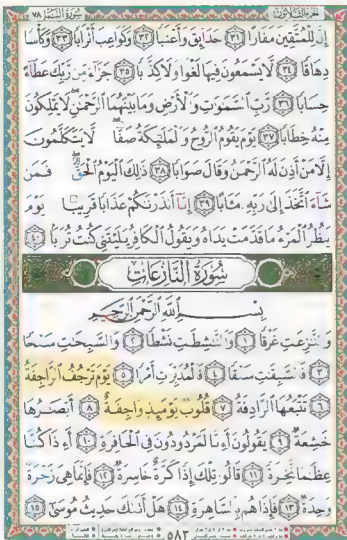 الجزء الثلاثون سورة النبأ ٧٨
إِنَّ لِلْمُتَّقِينَ مَفَازًا ٣١ حَدَائِقَ وَأَعْنَابًا ٣٢ وَكَوَاعِبَ أَتْرَابًا ٣٣ وَكَأْسًا
دِهَاقًا ٣٤ لَا يَسْمَعُونَ فِيهَا لَغْوًا وَلَا كِذَّابًا ٣٥ جَزَاءً مِنْ رَبِّكَ عَطَاءً
حِسَابًا ٣٦ رَبِّ السَّمَوَتِ وَالْأَرْضِ وَمَا بَيْنَهُمَا الرَّحْمَنِ لَا يَمْلِكُونَ
مِنْهُ خِطَابًا ٣٧ يَوْمَ يَقُومُ الرُّوحُ وَالْمَلَئِكَةُ صَفًّا لَا يَتَكَلَّمُونَ
إِلَّا مَنْ أَذِنَ لَهُ الرَّحْمَنُ وَقَالَ صَوَابًا ٣٨ ذَلِكَ الْيَوْمُ الْحَقُّ فَمَن
شَاءَ اتَّخَذَ إِلَى رَبِّهِ مَئَابًا ٣٩ إِنَّا أَنْذَرْنَكُمْ عَذَابًا قَرِيبًا يَوْمَ
يَنْظُرُ الْمَرْءُ مَا قَدَّمَتْ يَدَاهُ وَيَقُولُ الْكَافِرُ يَلَيْتَنِي كُنْتُ تُرَبًا ٤٠
سُورَةُ النَّازِعَاتِ
بِسْمِ اللَّهِ الرَّحْمَنِ الرَّحِيمِ
وَالنَّزِعَتِ غَرْقًا ١ وَالنَّشِطَتِ نَشْطًا ٢ وَالسَّبِحَتِ سَبْحًا
٣ فَالسَّبِقَتِ سَبْقًا ٤ فَالْمُدَبِّرَتِ أَمْرًا ٥ يَوْمَ تَرْجُفُ الرَّاجِفَةُ
٦ تَتْبَعُهَا الرَّادِفَةُ ٧ قُلُوبٌ يَوْمَئِذٍ وَاجِفَةٌ ٨ أَبْصَرُهَا
خَشِعَةٌ ٩ يَقُولُونَ أَءِنَّا لَمَرْدُودُونَ فِي الْحَافِرَةِ ١٠ أَءِذَا كُنَّا
عِظَمًا نَخِرَةً ١١ قَالُوا تِلْكَ إِذًا كَرَّةٌ خَاسِرَةٌ ١٢ فَإِنَّمَا هِيَ زَجْرَةٌ
وَحِدَةٌ ١٣ فَإِذَا هُمْ بِالسَّاهِرَةِ ١٤ هَلْ أَتَىكَ حَدِيثُ مُوسَى ١٥
٥٨٣